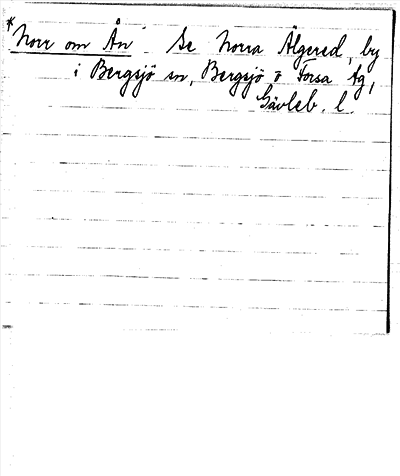 *Norr om Ån. Se Norra Älgered, by
i Bergsjö sn, Bergsjö o Forsa tg,
Gävleb. l.